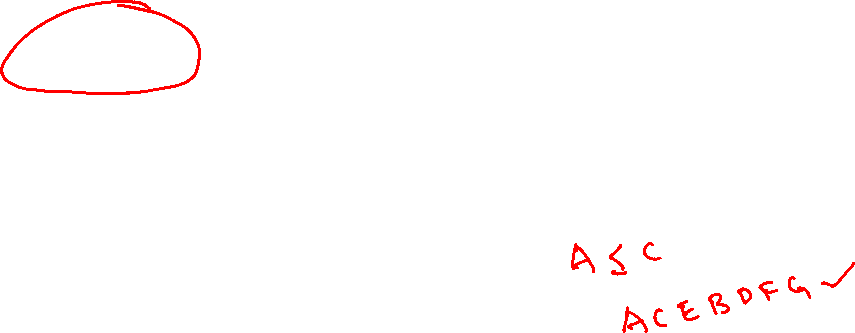 A ≤ C
A C E B D F G ✓